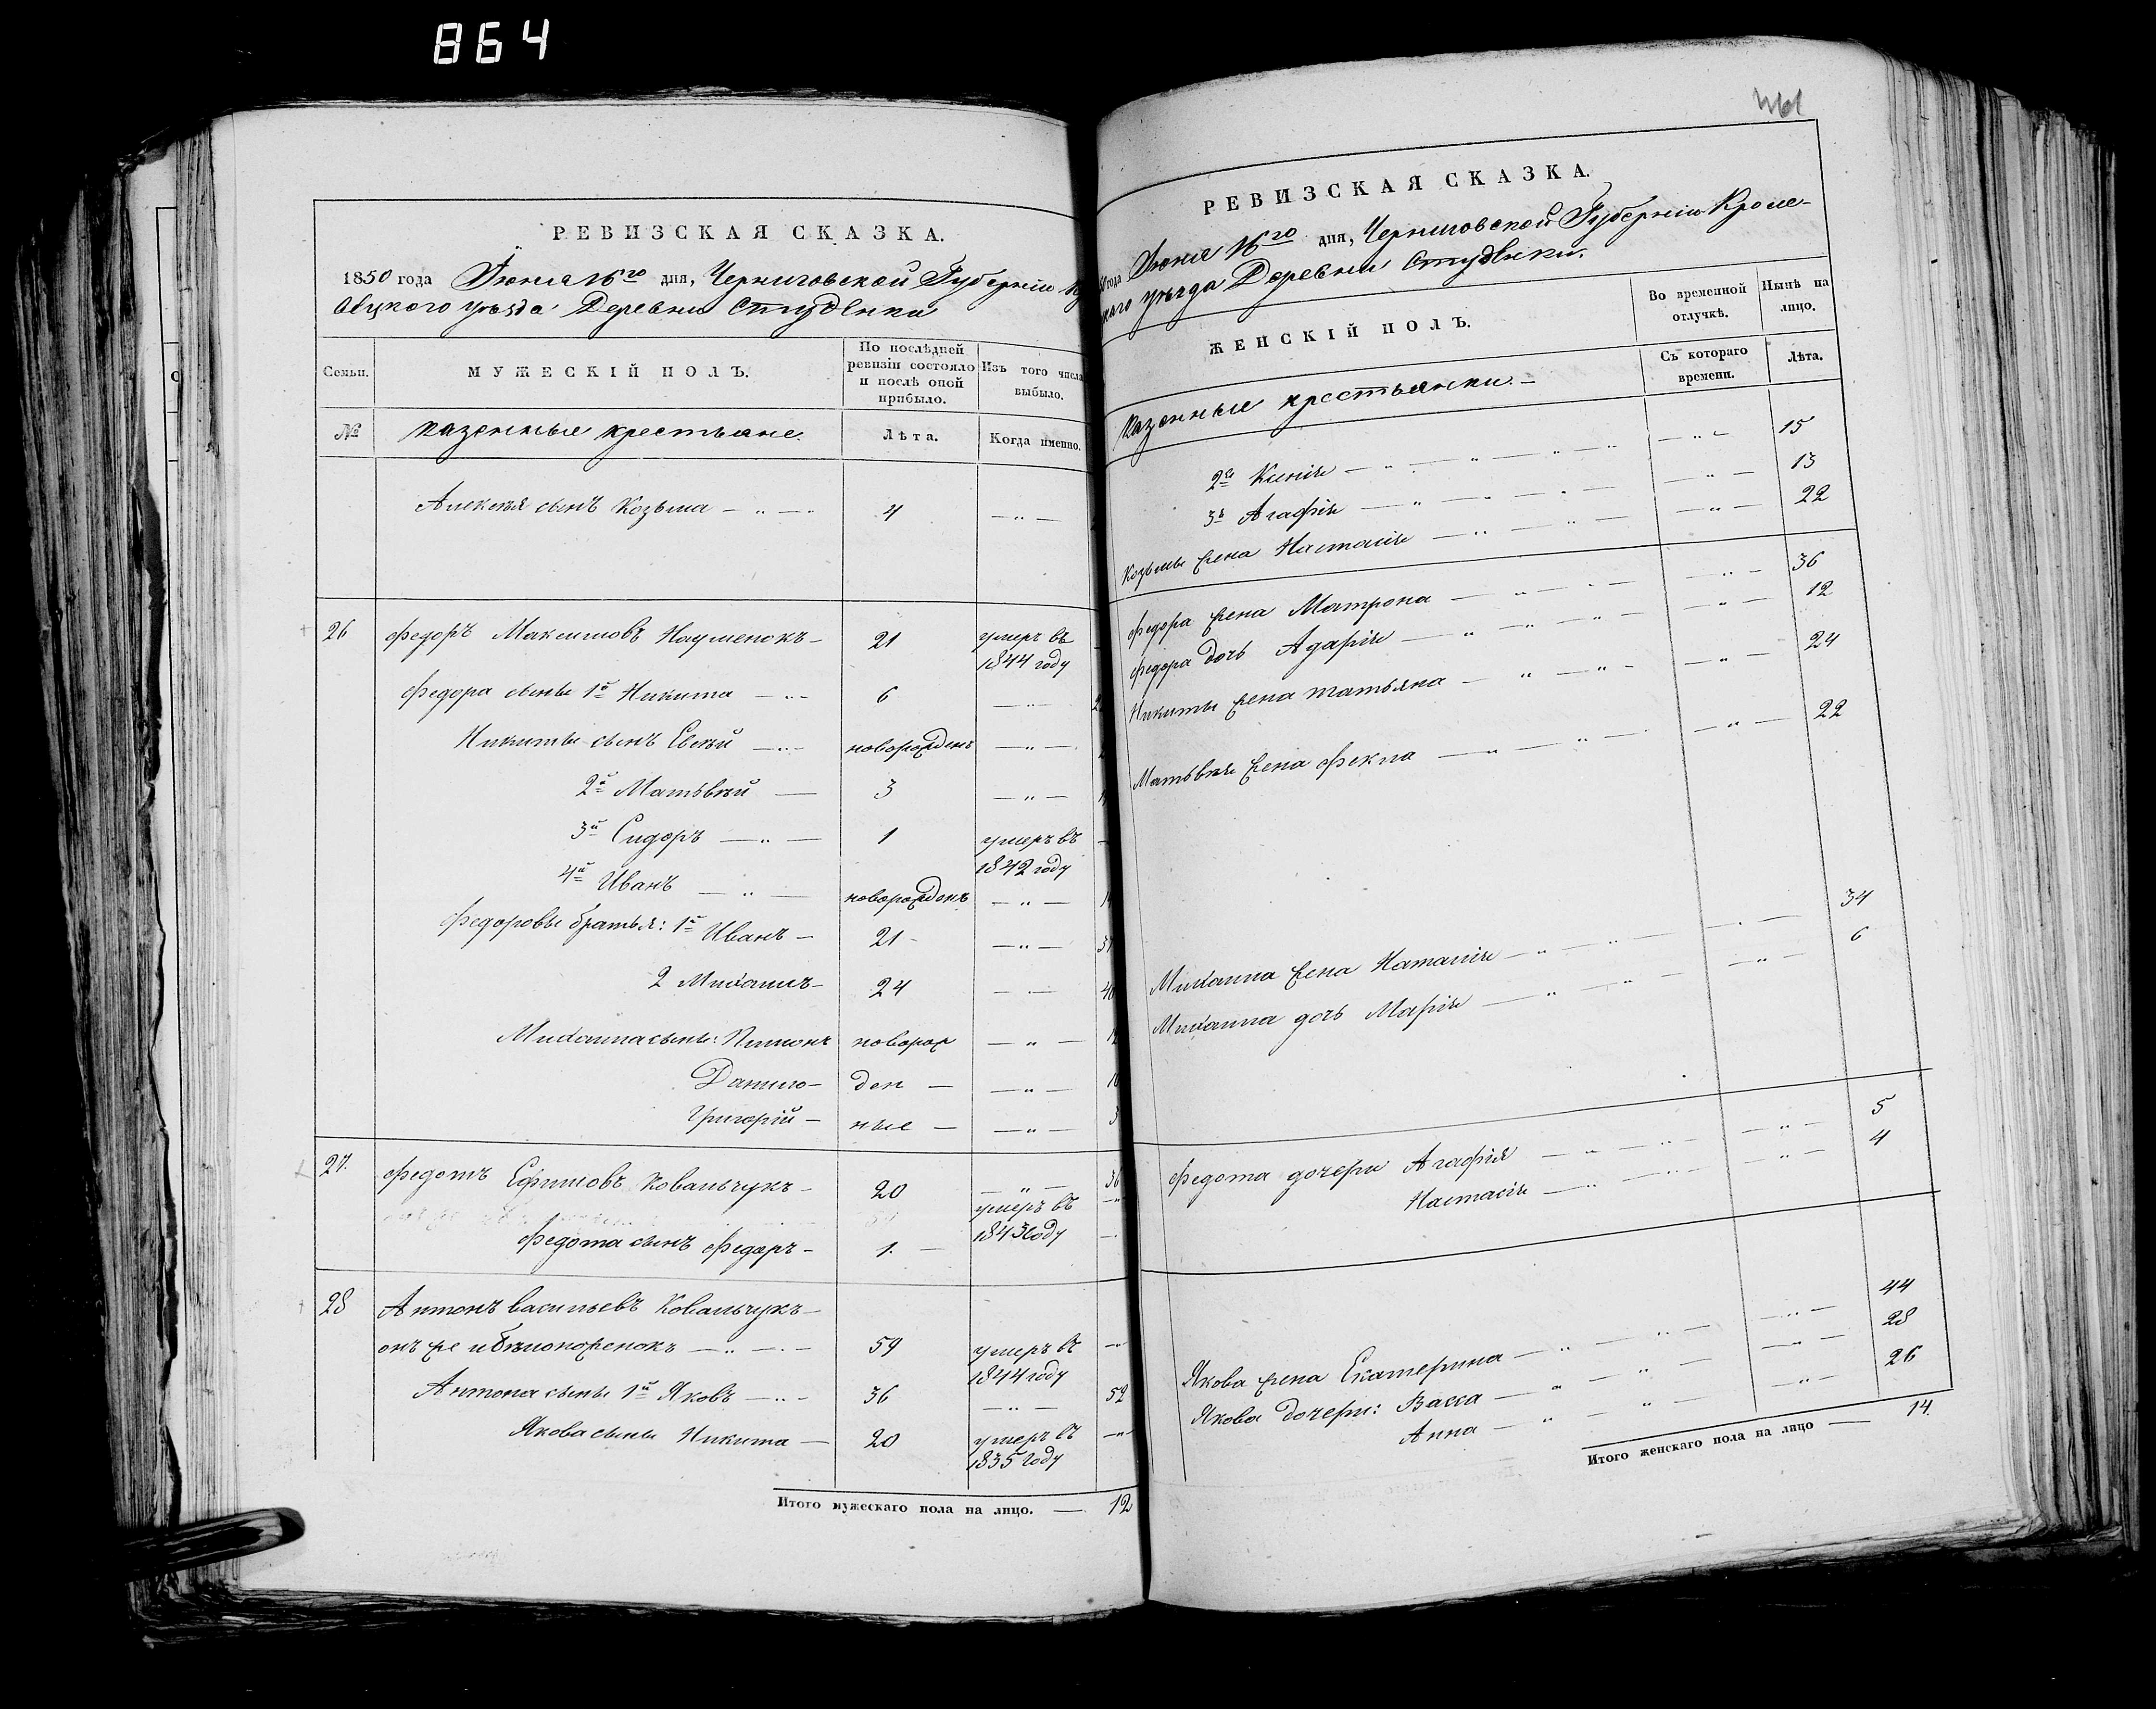 864
РЕВИЗСКАЯ СКАЗКА.
1850 года Июня 16го дня, Черниговской Губерніи
вецкого уезда Деревни Студенки
Семьи.
МУЖЕСКІЙ ПОЛЪ.
По послѣдней ревизіи состояло и послѣ оной прибыло.
Изъ того числа выбыло.
№
казенные крестьяне.
Лѣта.
Когда именно.
Алексея сынъ Козьма — „ — 4 — „ —
26 Федоръ Максимовъ Науменокъ — 21 умеръ въ 1844 году
Федора сыны 1й Никита — „ — 6 — „ —
Никиты сынъ Евсей — „ — новорожденъ — „ —
2й Матвей — 3 — „ —
3й Сидоръ — „ — 1 умеръ въ 1842 году
4й Иванъ — „ — новорожденъ — „ —
Федоровы братья: 1й Иванъ — 21 — „ —
2 Михаилъ — 24 — „ —
Михаила сыны: Пименъ новорож — „ —
Данило — ден — — „ —
Григорій — ные — — „ —
27. Федотъ Ефимовъ Ковальчукъ — 20 — „ — 36
Федота сынъ Федоръ — 1. — умеръ въ 1843 году
28 Антонъ Васильевъ Ковальчукъ —
онъ же и — „ — 59 умеръ въ 1844 году
Антона сыны 1й Яковъ — „ — 36 — „ — 52
Якова сыны Никита — 20 умеръ въ 1835 году
Итого мужескаго пола на лицо. — 12
РЕВИЗСКАЯ СКАЗКА.
года Июня 16го дня, Черниговской Губерніи Кроле-
каго уезда Деревни Студенки.
ЖЕНСКІЙ ПОЛЪ.
Во временной отлучкѣ.
Нынѣ на лицо.
Съ котораго времени.
Лѣта.
Казенные крестьянки. —
2я Ксенія — „ — 15
3я Агафія — „ — 13
Козьмы жена Настасія — „ — 22
Федора жена Матрона — „ — 36
Федора дочь — „ — 12
Никиты жена Татьяна — „ — 24
Матвея жена Фекла — „ — 22
Михаила жена Наталія — „ — 34
Михаила дочь Марія — „ — 6
Федота дочери Агафія — „ — 5
Настасія — „ — 4
Якова жена Екатерина — „ — 44
Якова дочери: Васса — „ — 28
Анна — „ — 26
Итого женскаго пола на лицо — 14.